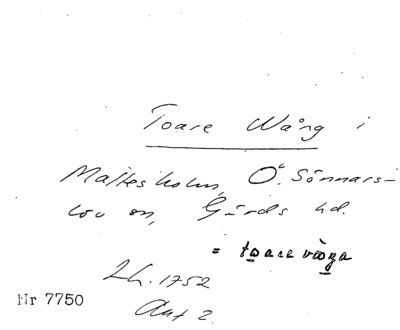 Toare Wång i
Maltesholm, Ö. Sönnars-
löv sn, Gärds hd.
= toare våga
Lh. 1752
Akt 2
Nr 7750